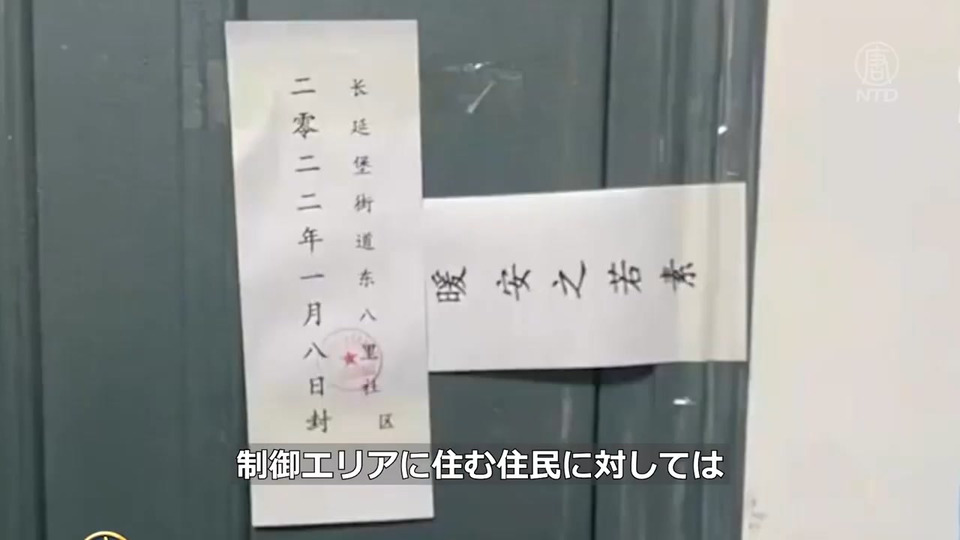 长延堡街道东八里社区
二零二二年一月八日封
暖安之若素
唐
NTD
制御エリアに住む住民に対しては